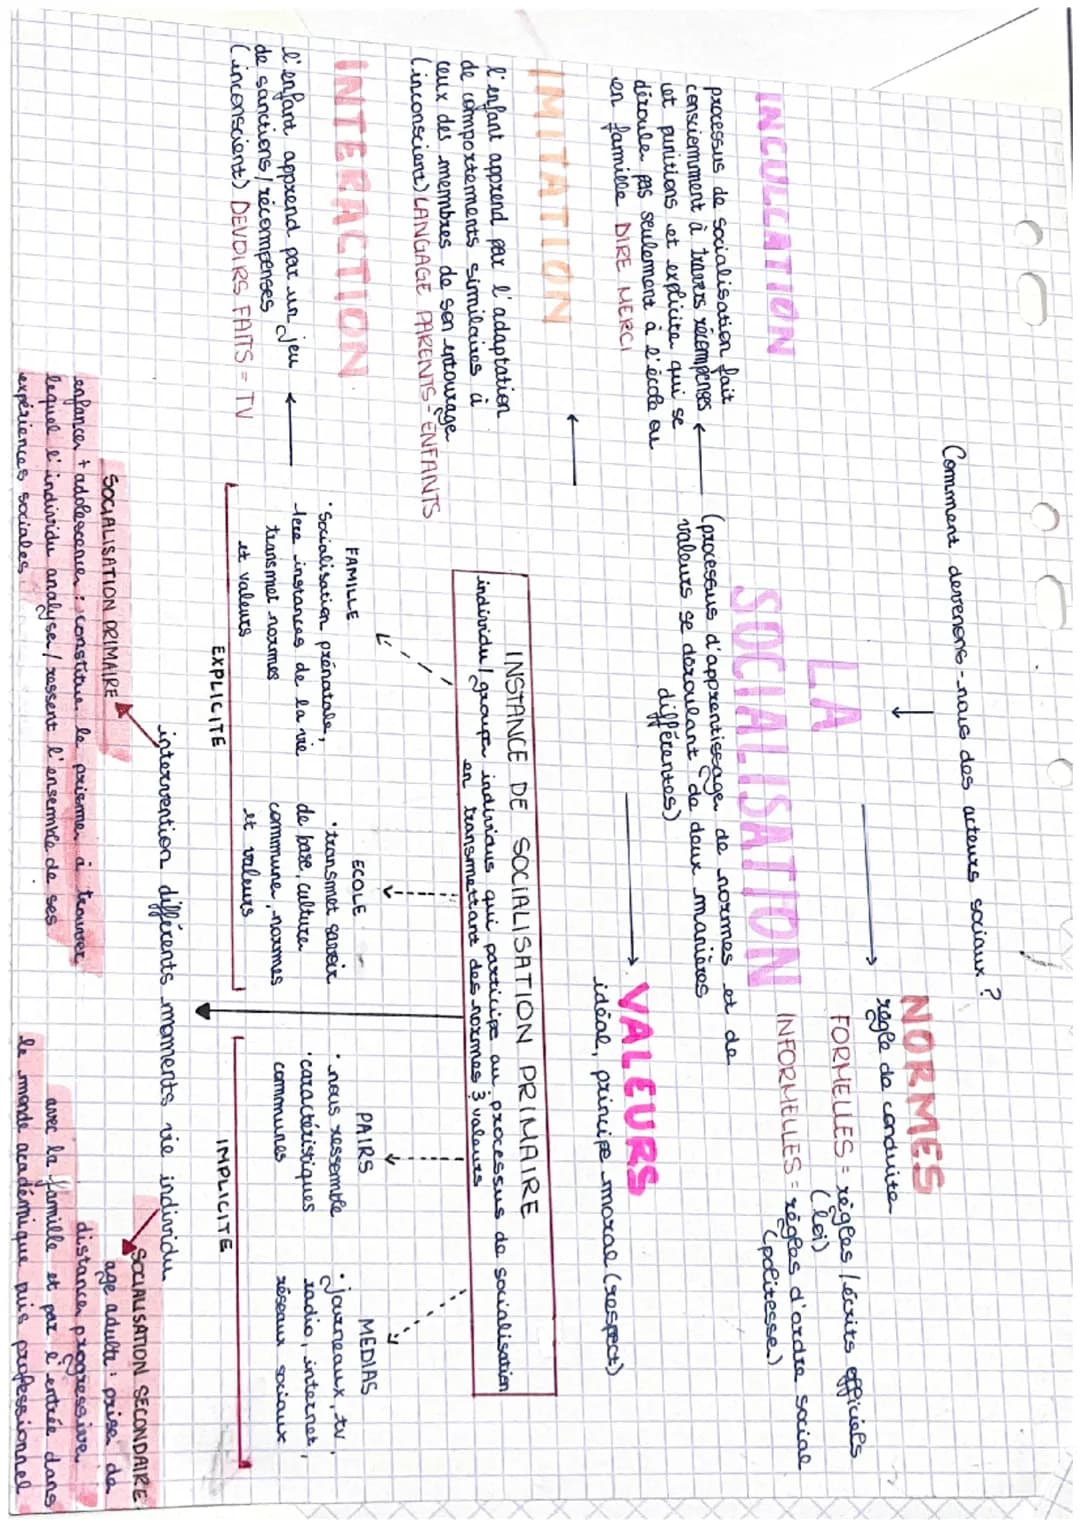 Comment devenons-nous des acteurs sociaux ?
LA
SOCIALISATION
(processus d'apprentissage de normes et de
valeurs se déroulant de deux manières
différentes)
NORMES
règle de conduite
FORMELLES = règles / écrits officiels
(loi)
INFORMELLES = règles d'ordre social
(politesse)
VALEURS
idéal, principe moral (respect)
INCULCATION
processus de socialisation fait
consciemment à travers récompenses
et punitions et explicite qui se
déroule pas seulement à l'école ou
en famille DIRE MERCI
IMITATION
l'enfant apprend par l'adaptation
de comportements similaires à
ceux des membres de son entourage
(inconscient) LANGAGE PARENTS-ENFANTS
INTERACTION
l'enfant apprend par un jeu
de sanctions/récompenses
(inconscient) DEVOIRS FAITS = TV
INSTANCE DE SOCIALISATION PRIMAIRE
individu/groupe individus qui participe au processus de socialisation
en transmettant des normes & valeurs
FAMILLE
• socialisation prénatale,
1ere instances de la vie
transmet normes
et valeurs
ECOLE
• transmet savoir
de base, culture
commune, normes
et valeurs
EXPLICITE
PAIRS
• nous ressemble
• caractéristiques
communes
MEDIAS
• journeaux, tv,
radio, internet,
réseaux sociaux
IMPLICITE
intervention différents moments vie individu
SOCIALISATION PRIMAIRE
enfance + adolescence : constitue le prisme à travers
lequel l'individu analyse/ressent l'ensemble de ses
expériences sociales
SOCIALISATION SECONDAIRE
age adulte : prise de
distance progressive
avec la famille et par l'entrée dans
le monde académique puis professionnel